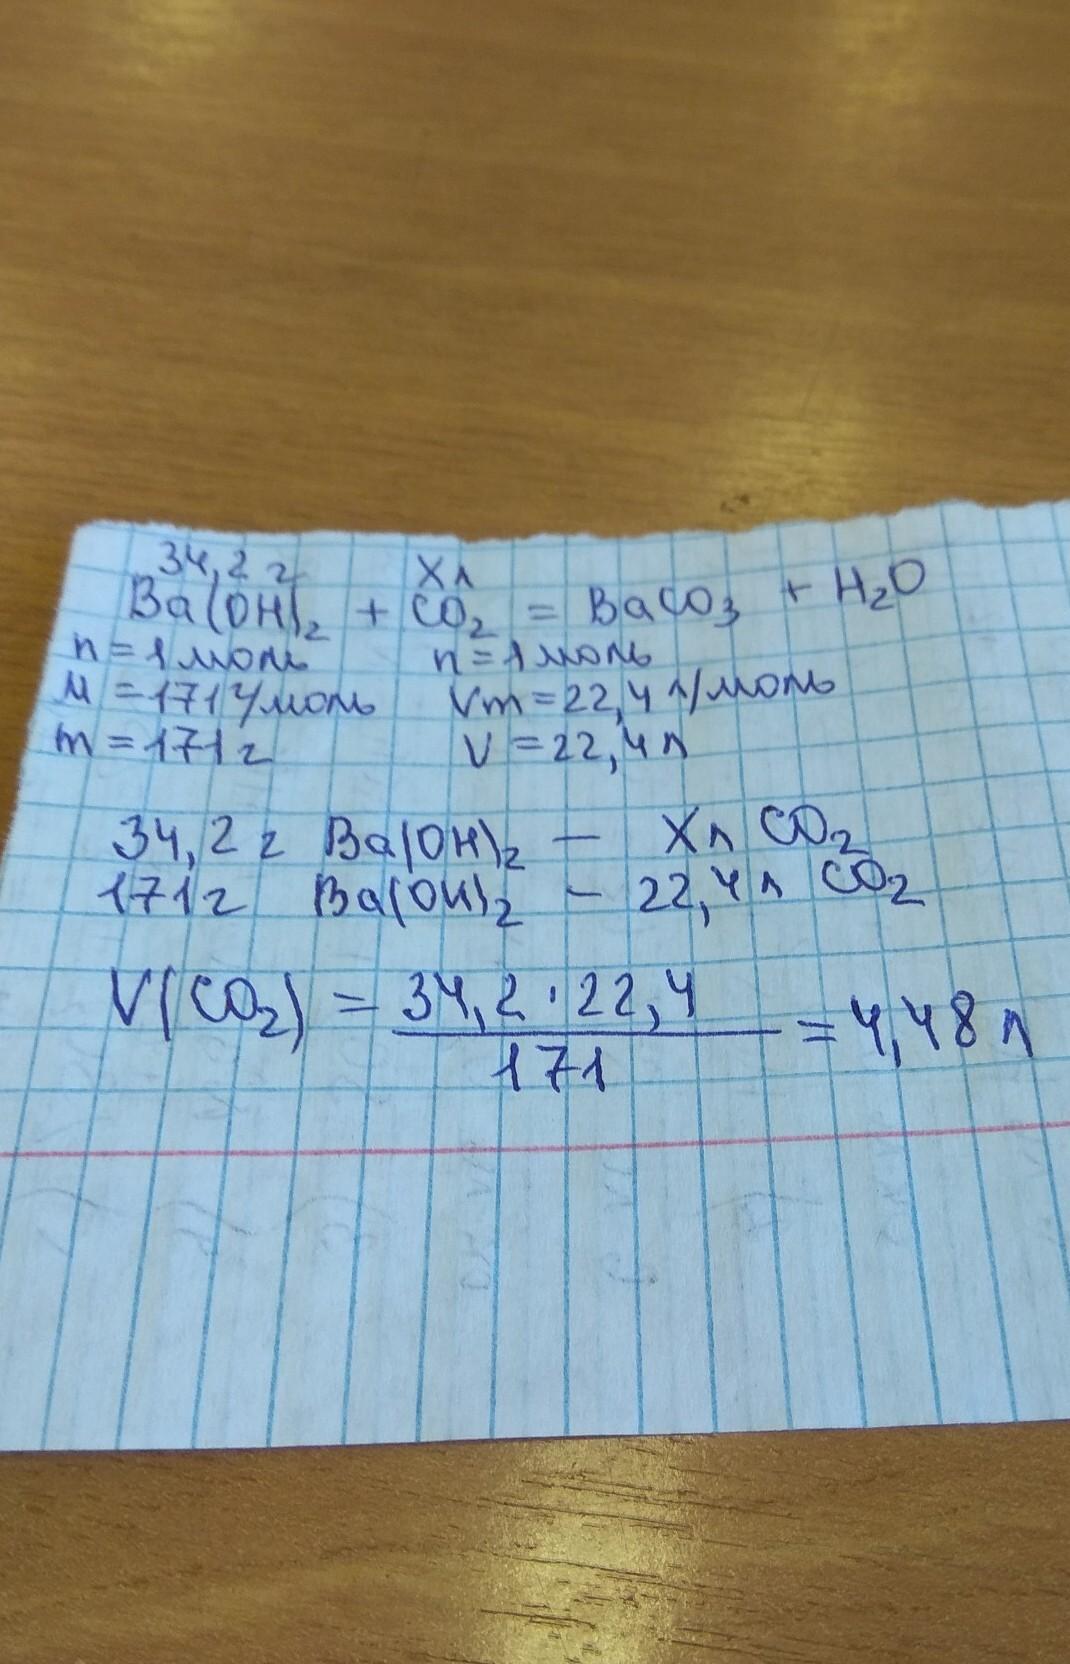 34,2 г Xл
Ba(OH)2 + CO2 = BaCO3 + H2O
n = 1 моль n = 1 моль
M = 171 г/моль Vm = 22,4 л/моль
m = 171 г V = 22,4 л
34,2 г Ba(OH)2 – Xл CO2
171 г Ba(OH)2 – 22,4 л CO2
V(CO2) = 34,2 · 22,4 / 171 = 4,48 л